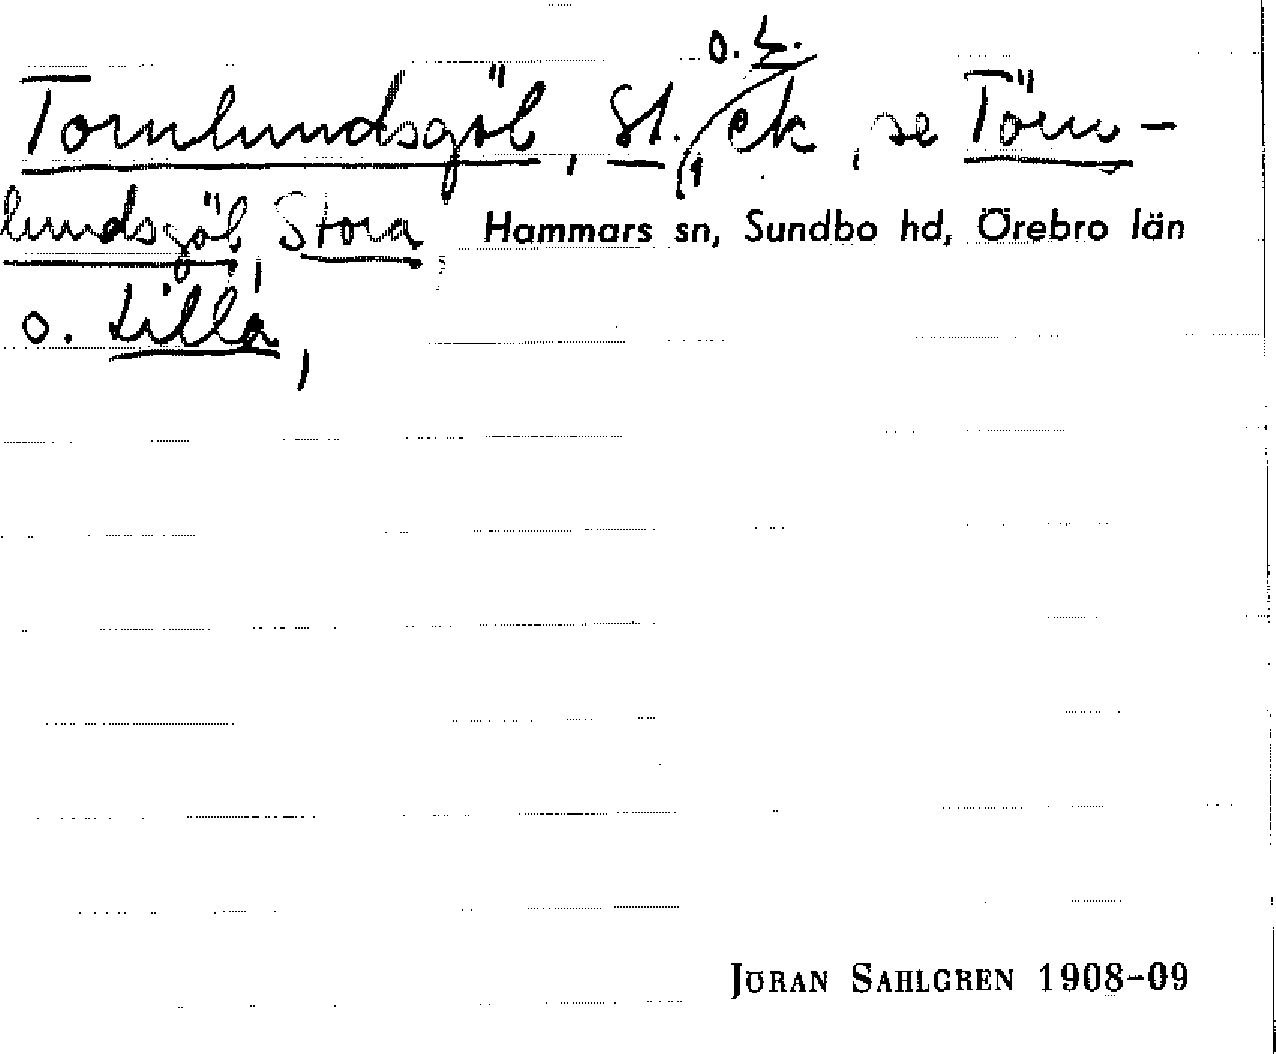 o. L.
Tornlundsgöl, St., ek, se Törn-
lundsgöl, Stora, Hammars sn, Sundbo hd, Örebro län
o. Lilla,
JÖRAN SAHLGREN 1908-09